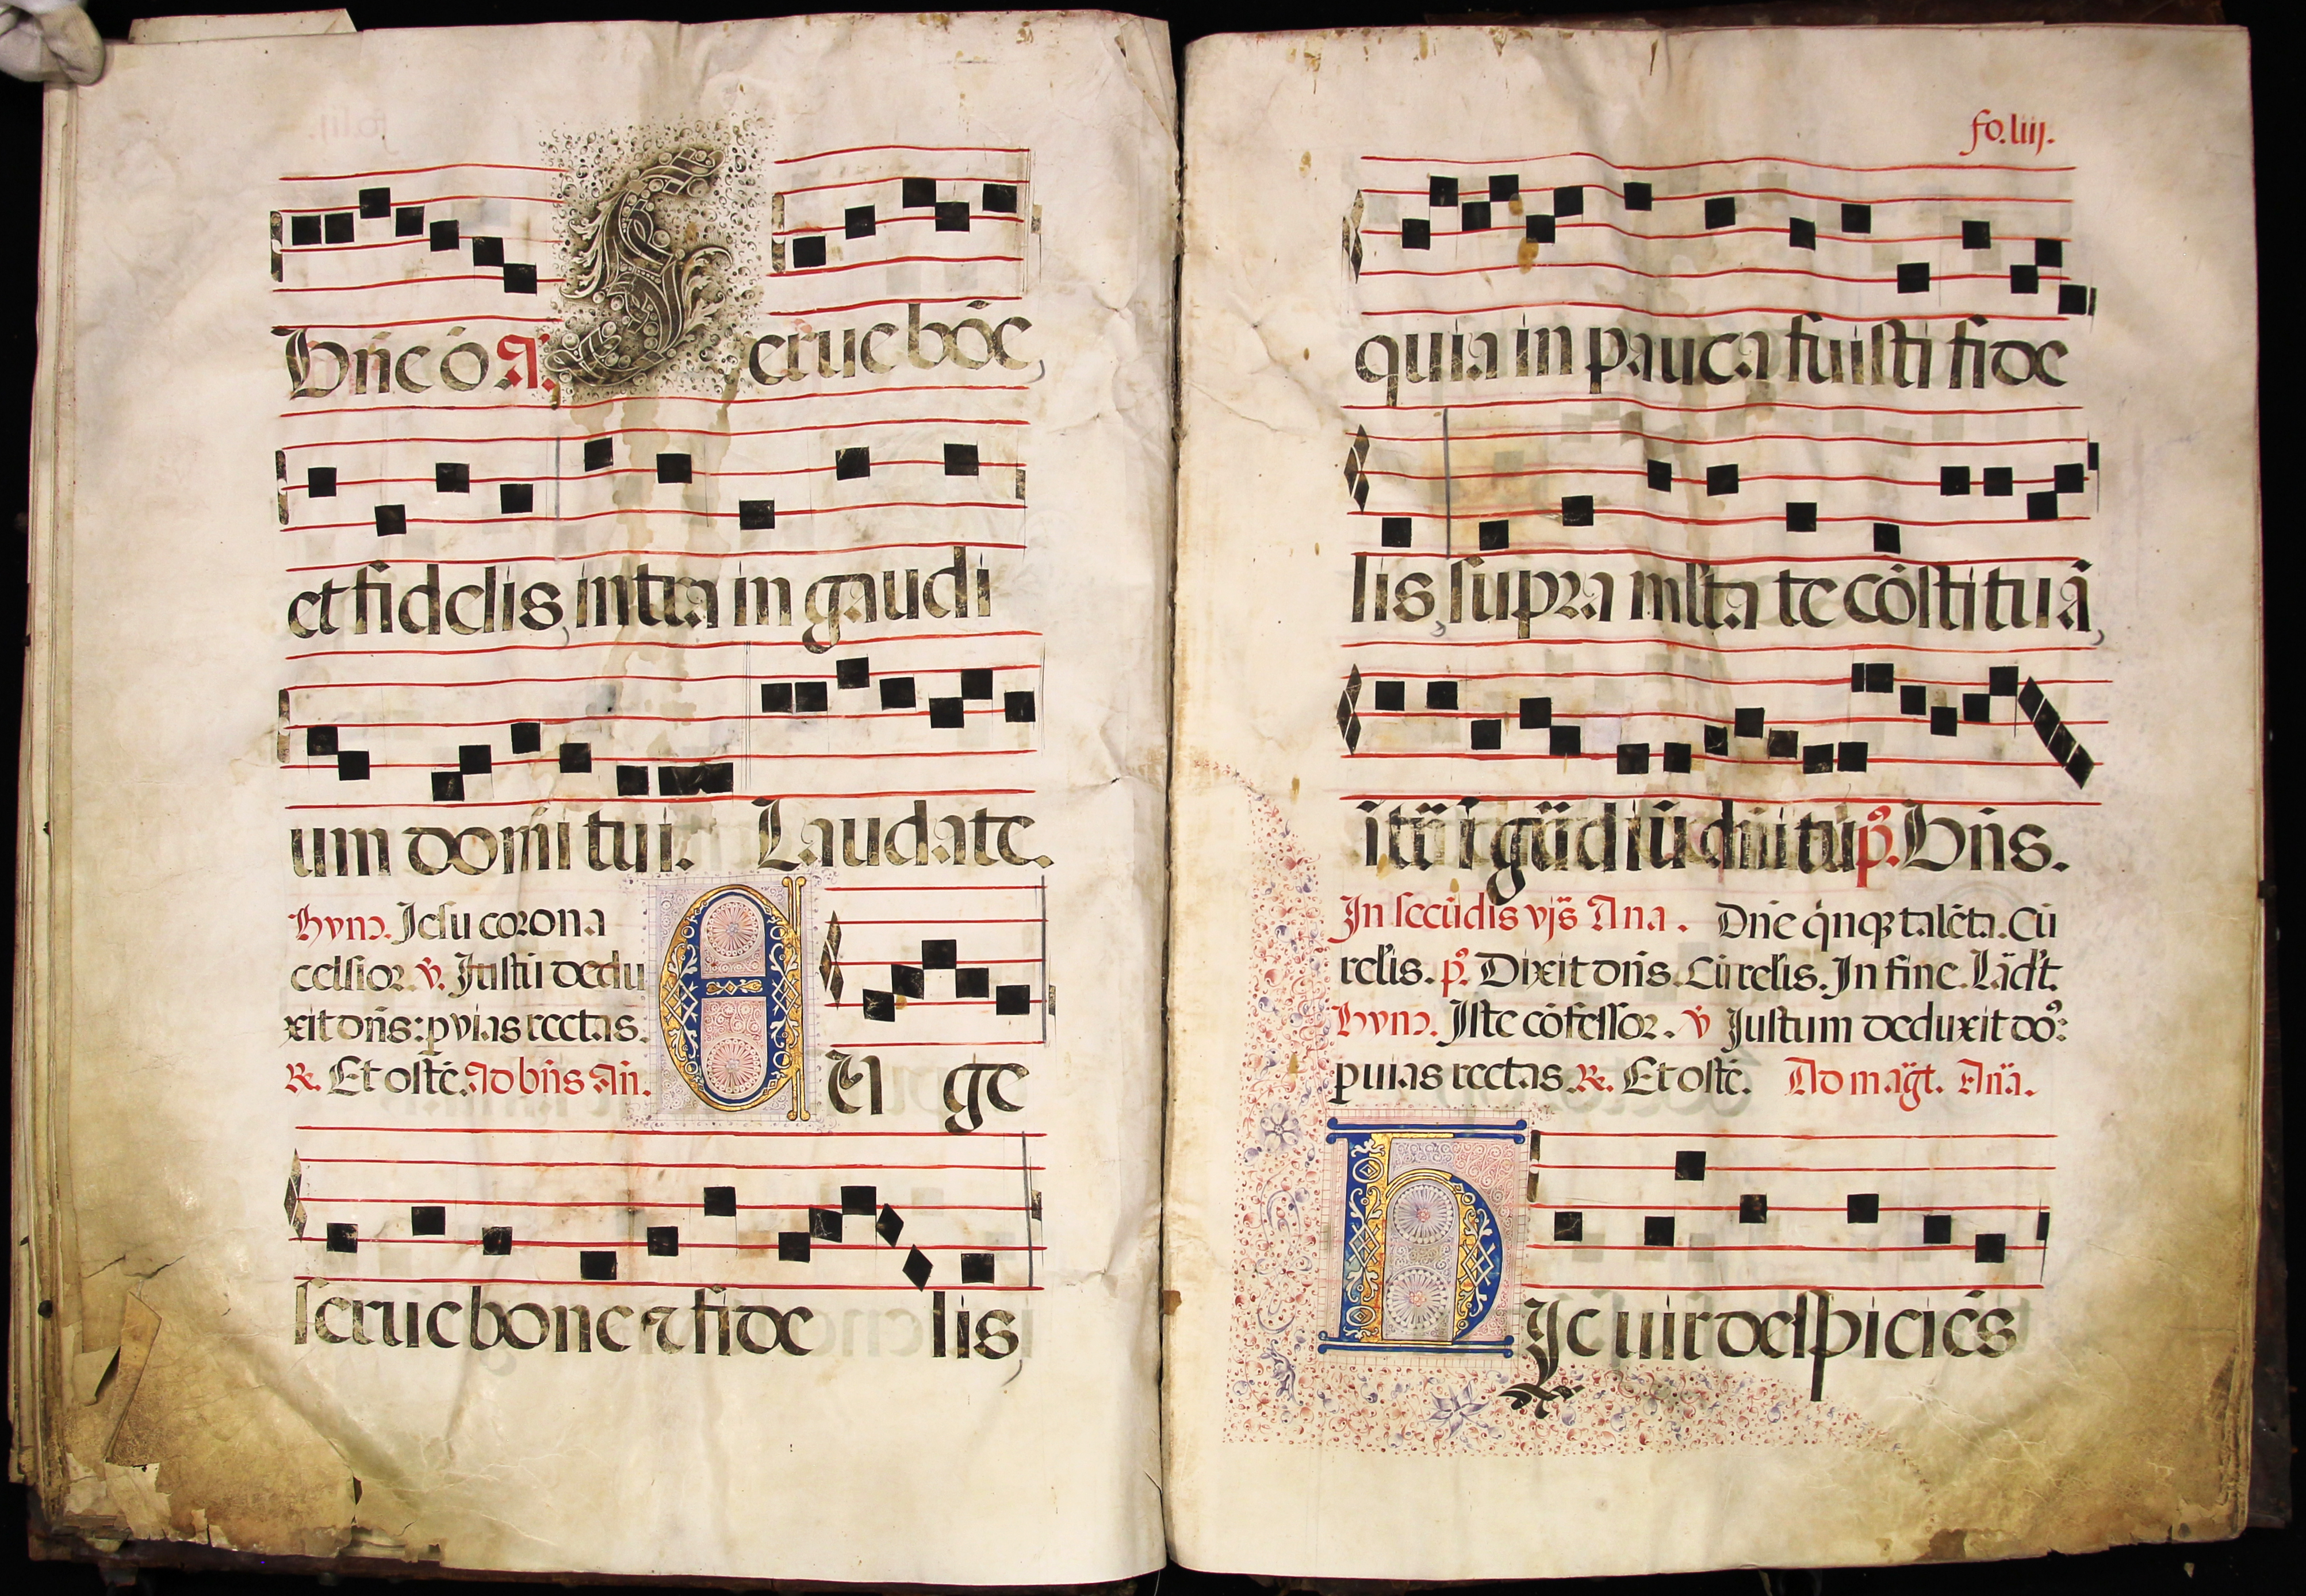 Bn̄e ō A. Serue bōe,
et fidelis, intra in gaudi
um domī tui. Laudate.
Hym̄. Iesu corona
celsior. v̄. Iustū dedu
xit dn̄s: p vias rectas.
R. Et ostē. Ad bn̄s An̄.
EU ge
serue bone ⁊ fide lis,
fo. liij.
quia in pauca fuisti fide
lis, supra mlta te cōstituā,
ītra ī gaudiū dn̄i tui p̄. Bn̄s.
In secūdis vjs̄ Ana. Dn̄e q̇nqꝫ talēta. Cū
relis. p̄. Dixit dn̄s. Cū relis. In fine. Lād't.
Hym̄. Iste cōfessor. v̄ Iustum deduxit do᷒:
p uias rectas. R. Et ostē. Ad māgt. Anā.
HIc uir despiciēs